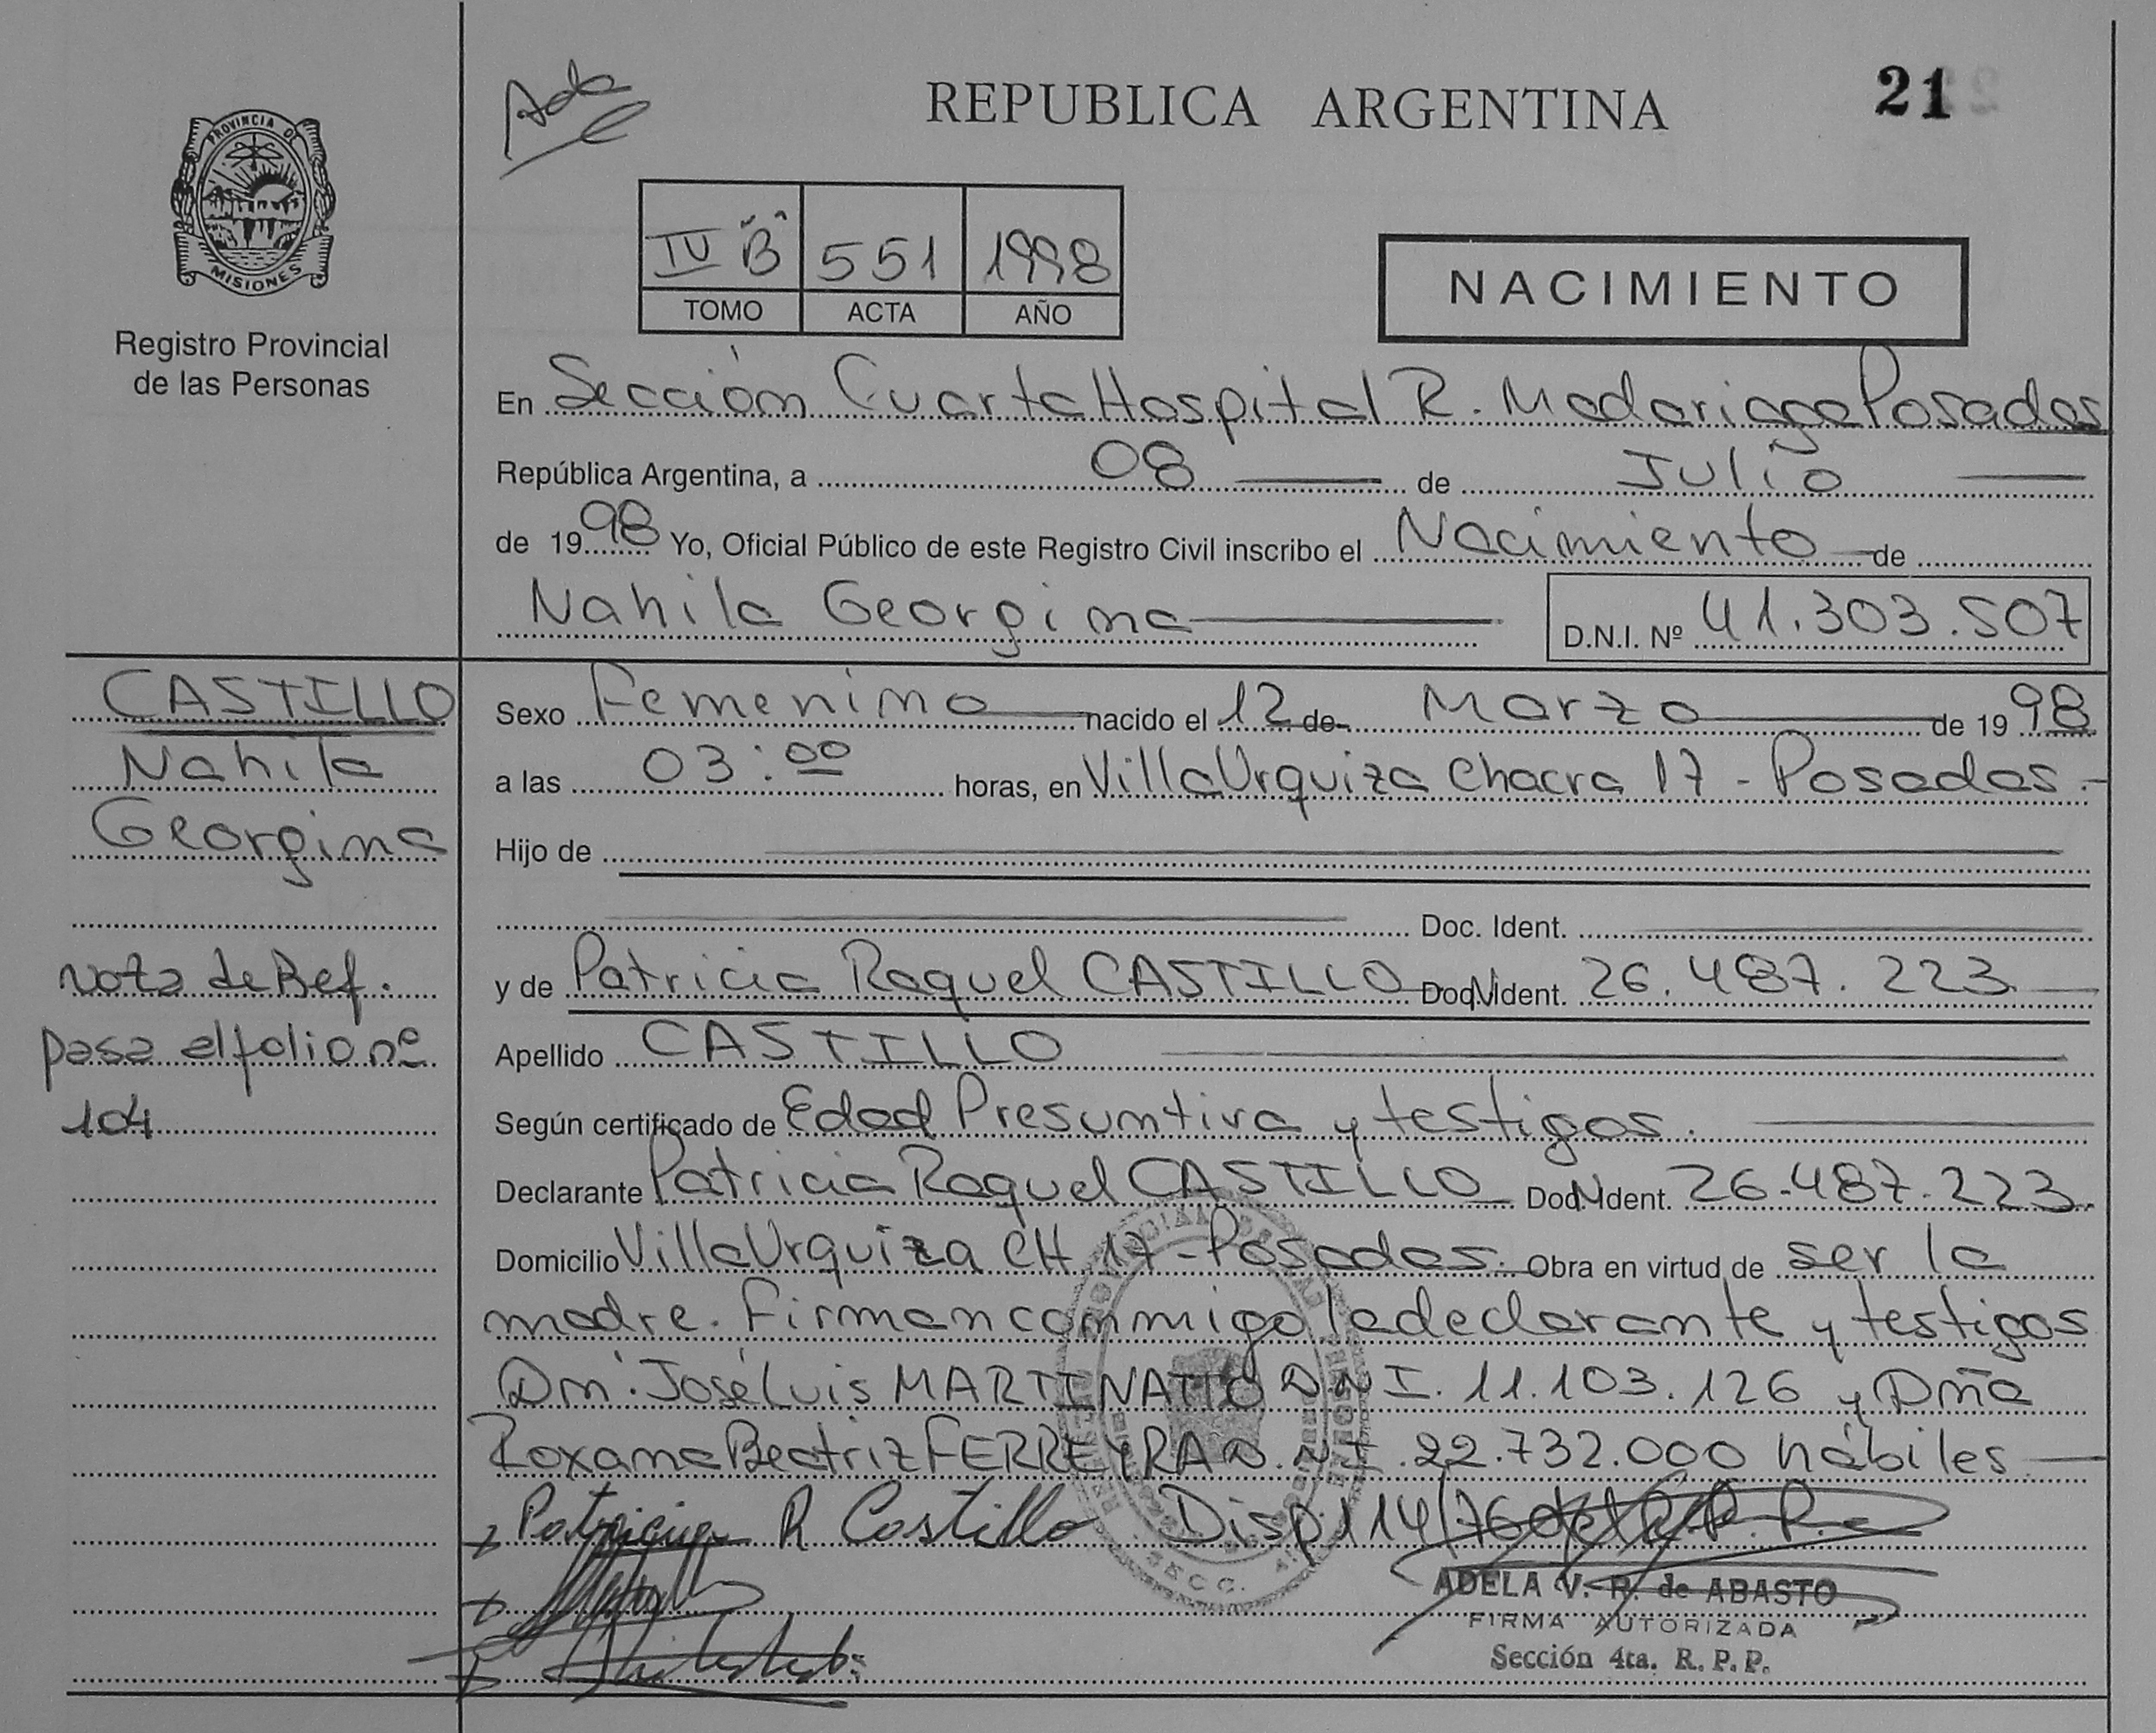 Ada
REPUBLICA ARGENTINA
21
PROVINCIA DE
MISIONES
Registro Provincial
de las Personas
IV B 551 1998
TOMO ACTA AÑO
NACIMIENTO
En Sección Cuarta Hospital R. Madariaga Posadas
República Argentina, a 08 de Julio
de 1998 Yo, Oficial Público de este Registro Civil inscribo el Nacimiento de
Nahila Georgina
D.N.I. Nº 41.303.507
CASTILLO
Nahila
Georgina
Nota de Ref.
pasa al folio nº
104
Sexo Femenino nacido el 12 de Marzo de 1998
a las 03:00 horas, en Villa Urquiza Chacra 17 - Posadas.-
Hijo de
Doc. Ident.
y de Patricia Raquel CASTILLO Doc. Ident. 26.487.223
Apellido CASTILLO
Según certificado de Edad Presuntiva y testigos.
Declarante Patricia Raquel CASTILLO Doc. Ident. 26.487.223.
Domicilio Villa Urquiza CH 17 - Posadas. Obra en virtud de ser la
madre. Firman conmigo la declarante y testigos
Dn. José Luis MARTINATTO D.N.I. 11.103.126 y Dña
Roxana Beatriz FERREYRA D.N.I. 22.732.000 hábiles
Patricia R Castillo Disp 114/76 del R.P.P.
ADELA V. R. de ABASTO
FIRMA AUTORIZADA
Sección 4ta. R. P. P.